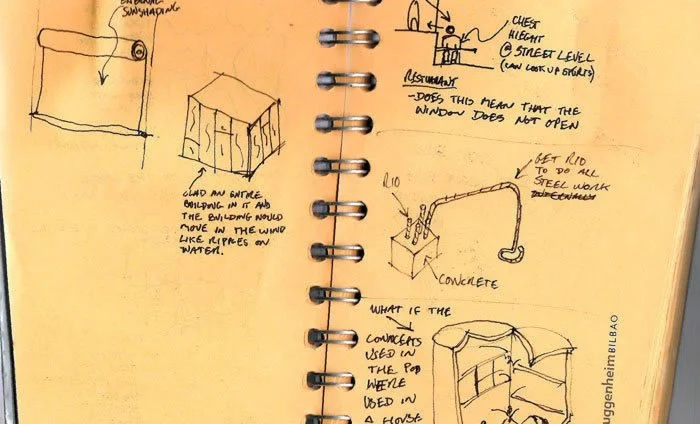 EXTERNAL
SUNSHADING
CLAD AN ENTIRE
BUILDING IN IT AND
THE BUILDING WOULD
MOVE IN THE WIND
LIKE RIPPLES ON
WATER.
CHEST
HIEGHT
@ STREET LEVEL
(CAN LOOK UP SKIRTS)
RESTAURANT
- DOES THIS MEAN THAT THE
WINDOW DOES NOT OPEN
GET RIO
TO DO ALL
STEEL WORK
RIO
CONCRETE
WHAT IF THE
CONCEPTS
USED IN
THE POD
WERE
USED IN
A HOUSE
uggenheim BILBAO